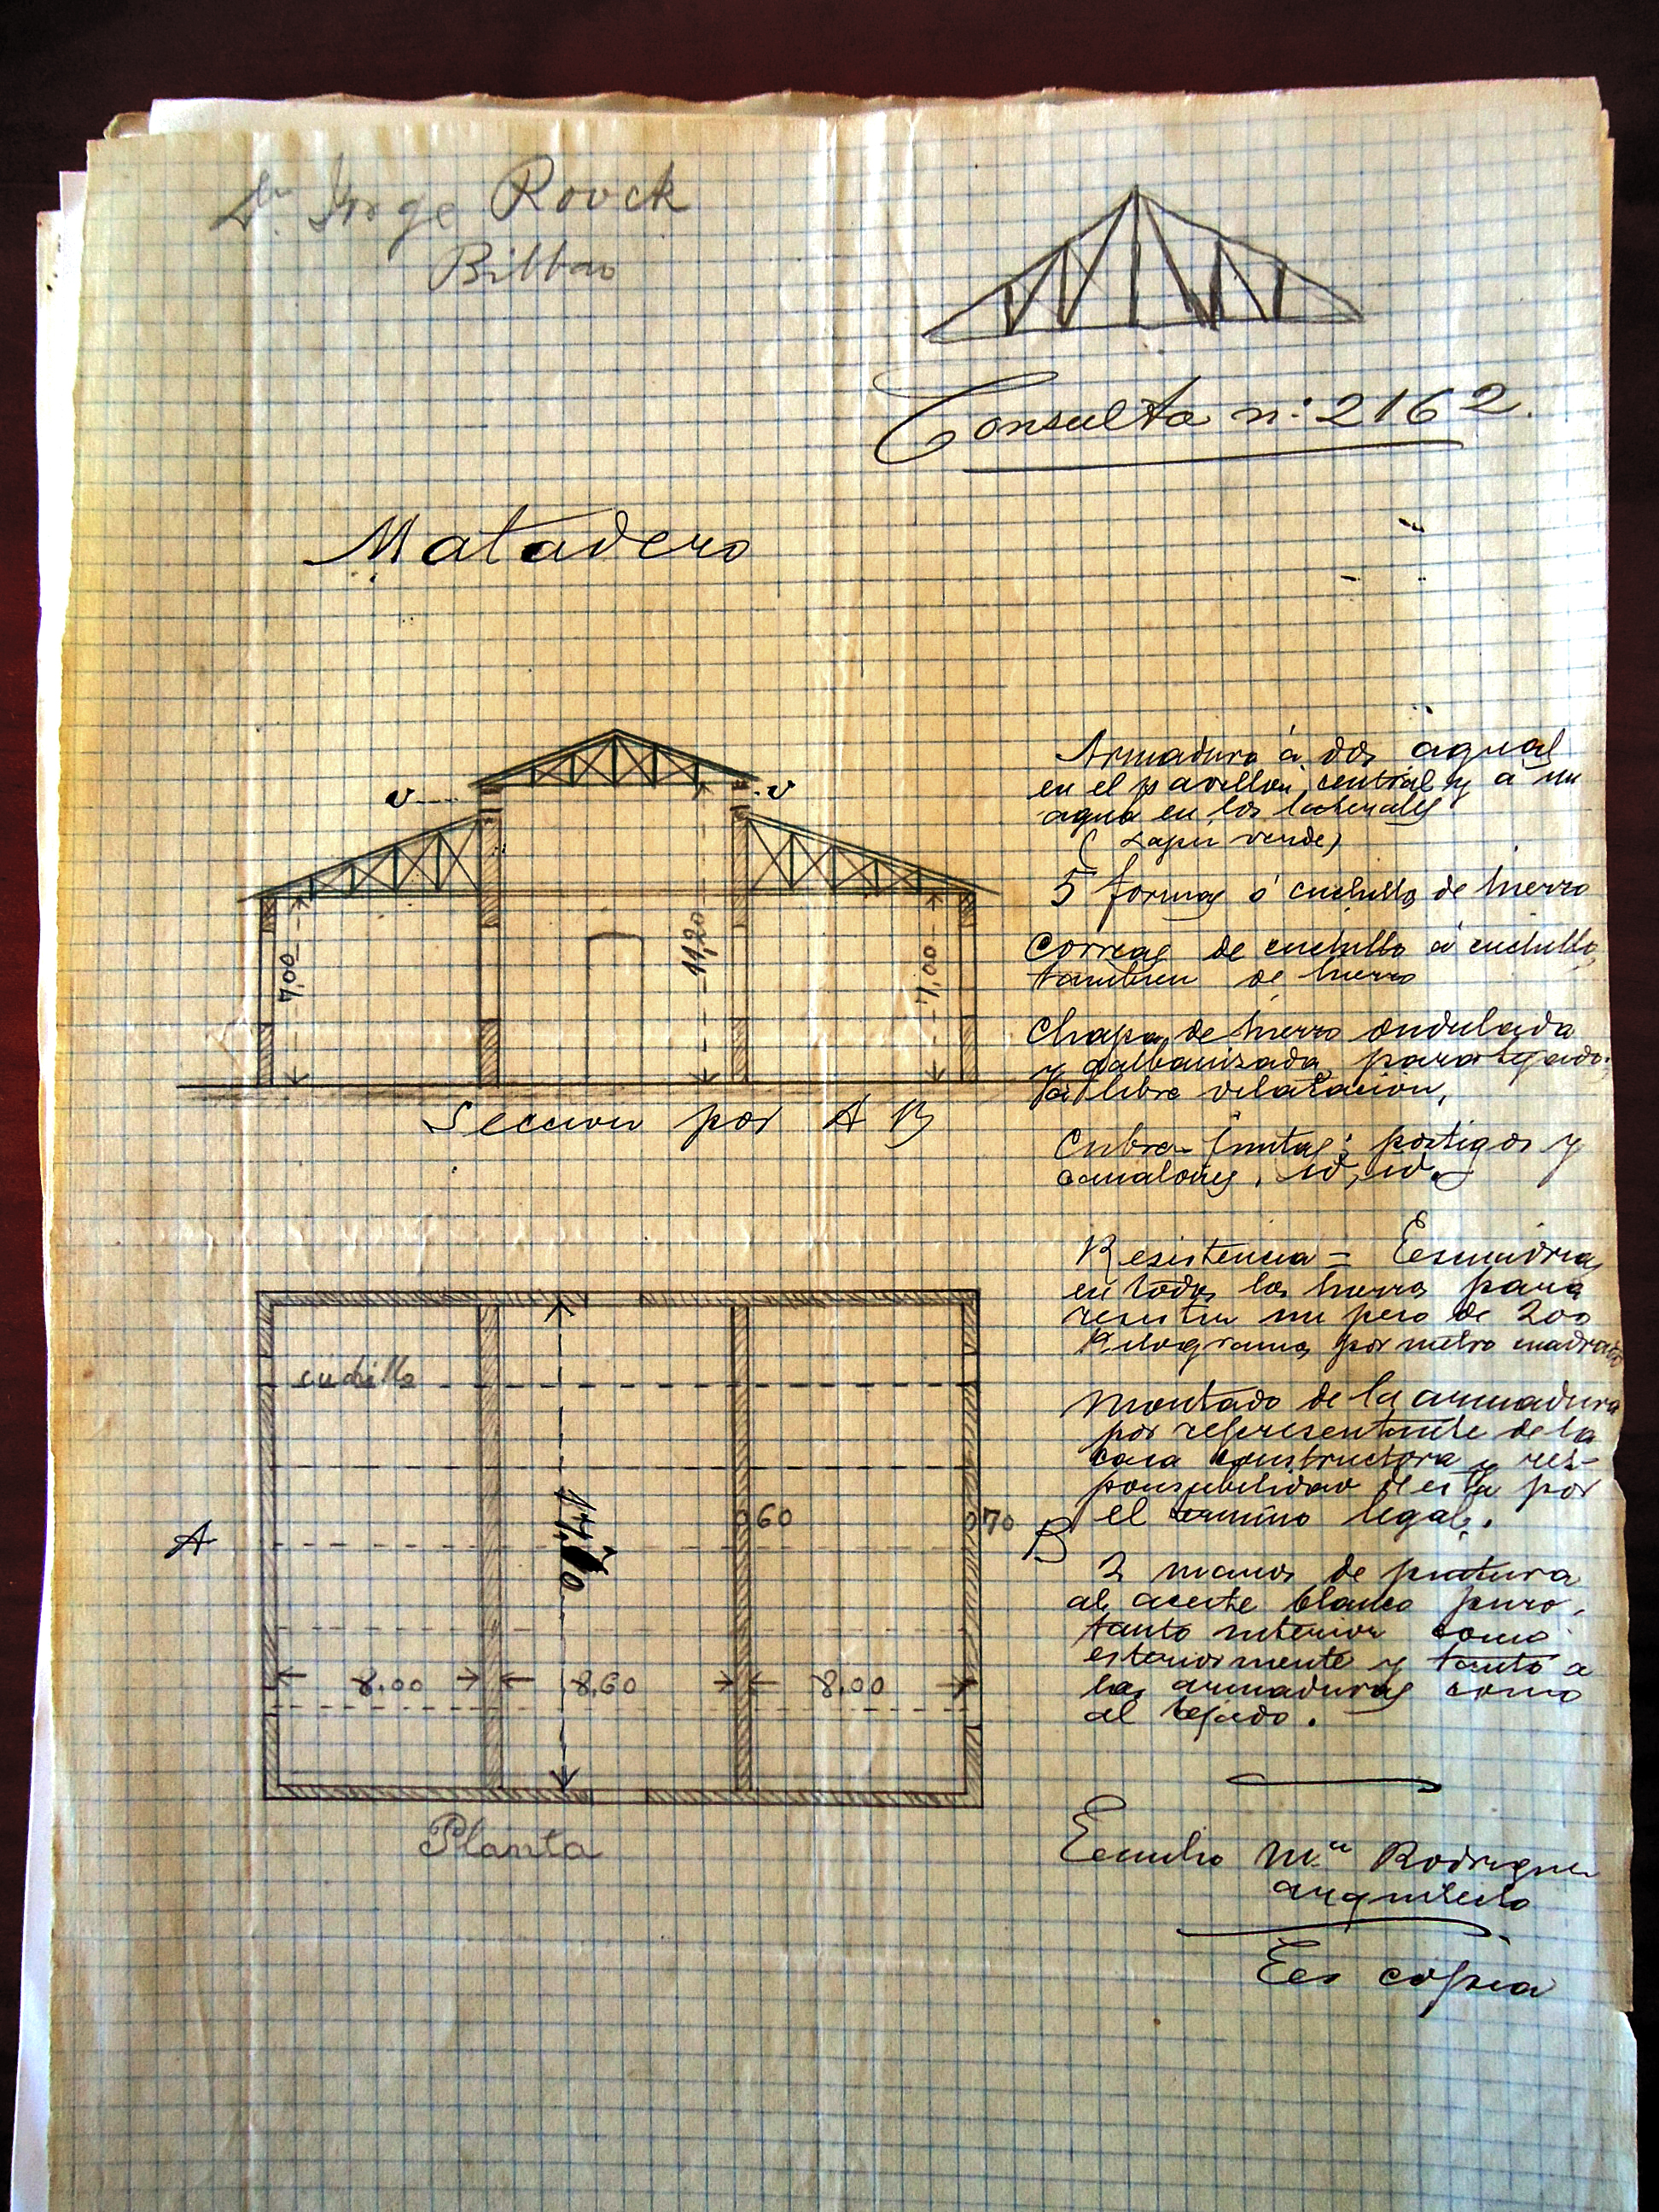 Dn Jorge Rouck
Bilbao
Consulta n: 2162.
Matadero
v
v
7,00
11,20
7,00
Seccion por A B
Armadura á dos aguas
en el pavellon central y á un
agua en los laterales
( Lapiz verde)
5 formas ó cuchillos de hierro
Correas de cuchillo á cuchillo,
tambien de hierro
Chapa de hierro ondulada
y galbanizada para tejado:
á libre dilatacion,
Cubre-juntas; postigos y
canalones, id, id.
Resistencia = Escuadrias
en todos los hierros para
resistir un peso de 200
Kilogramos por metro cuadrado
Montado de la armadura
por representante de la
casa constructora y res-
ponsabilidad de esta por
el termino legal.
2 manos de pintura
al aceite blanco puro,
tanto interior como
esteriormente y tanto a
las armaduras como
al tejado.
cuchillo
0,60
0,70
A
B
8.00
8,60
8,00
Planta
Emilio Mª Rodriguez
arquitecto
Es copia